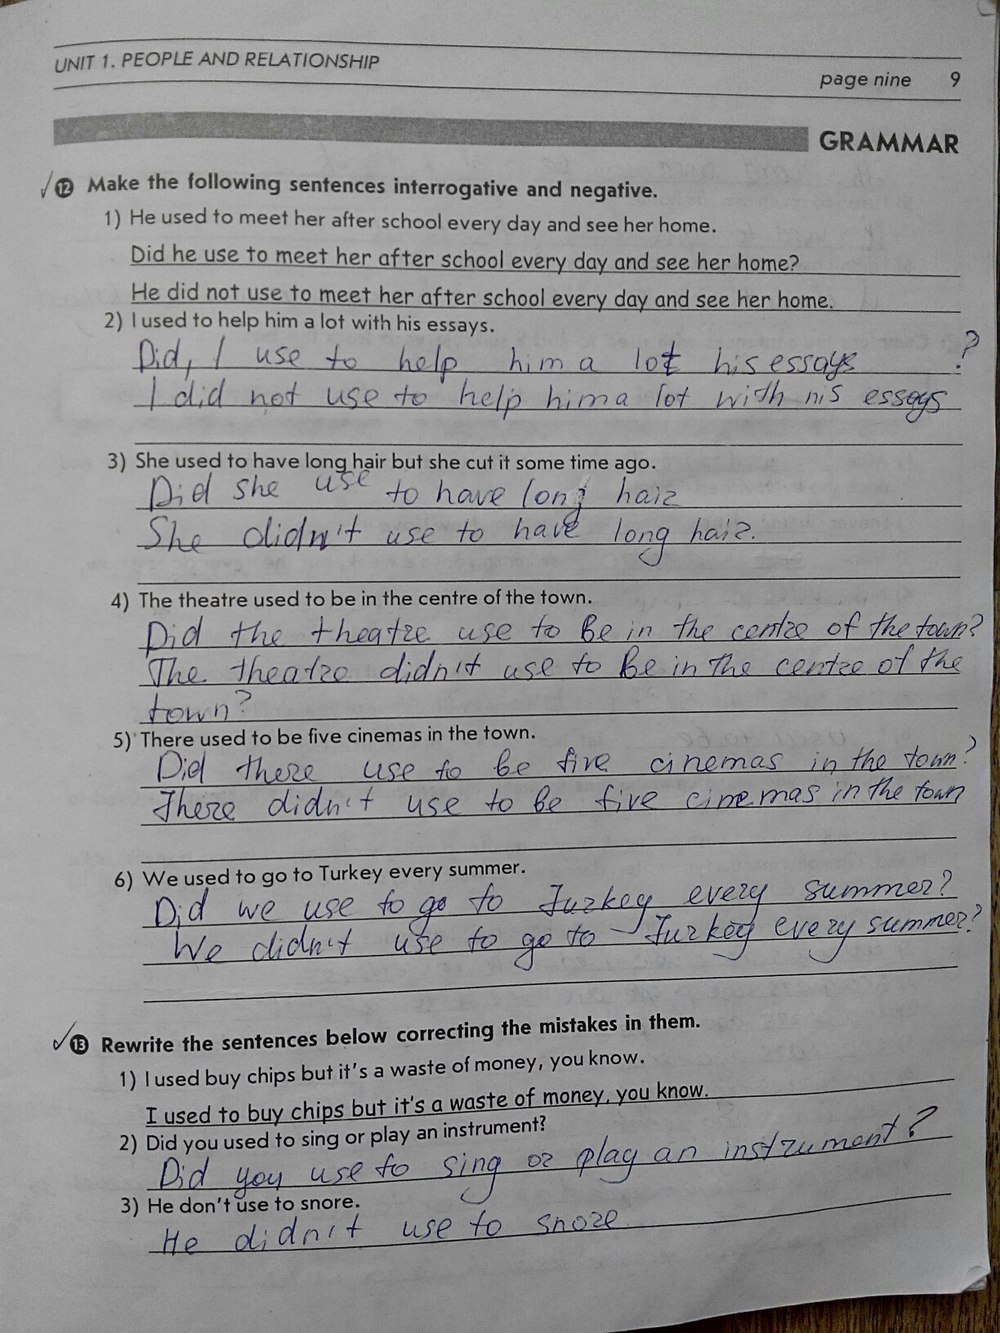 UNIT 1. PEOPLE AND RELATIONSHIP
page nine 9
GRAMMAR
12 Make the following sentences interrogative and negative.
1) He used to meet her after school every day and see her home.
Did he use to meet her after school every day and see her home?
He did not use to meet her after school every day and see her home.
2) I used to help him a lot with his essays.
Did, I use to help him a lot his essays ?
I did not use to help him a lot with his essays
3) She used to have long hair but she cut it some time ago.
Did she use to have long hair
She didn't use to have long hair.
4) The theatre used to be in the centre of the town.
Did the theatre use to be in the centre of the town?
The theatre didn't use to be in the centre of the
town?
5) There used to be five cinemas in the town.
Did there use to be five cinemas in the town?
There didn't use to be five cinemas in the town
6) We used to go to Turkey every summer.
Did we use to go to Turkey every summer?
We didn't use to go to Turkey every summer?
13 Rewrite the sentences below correcting the mistakes in them.
1) I used buy chips but it's a waste of money, you know.
I used to buy chips but it's a waste of money, you know.
2) Did you used to sing or play an instrument?
Did you use to sing or play an instrument?
3) He don't use to snore.
He didn't use to snore